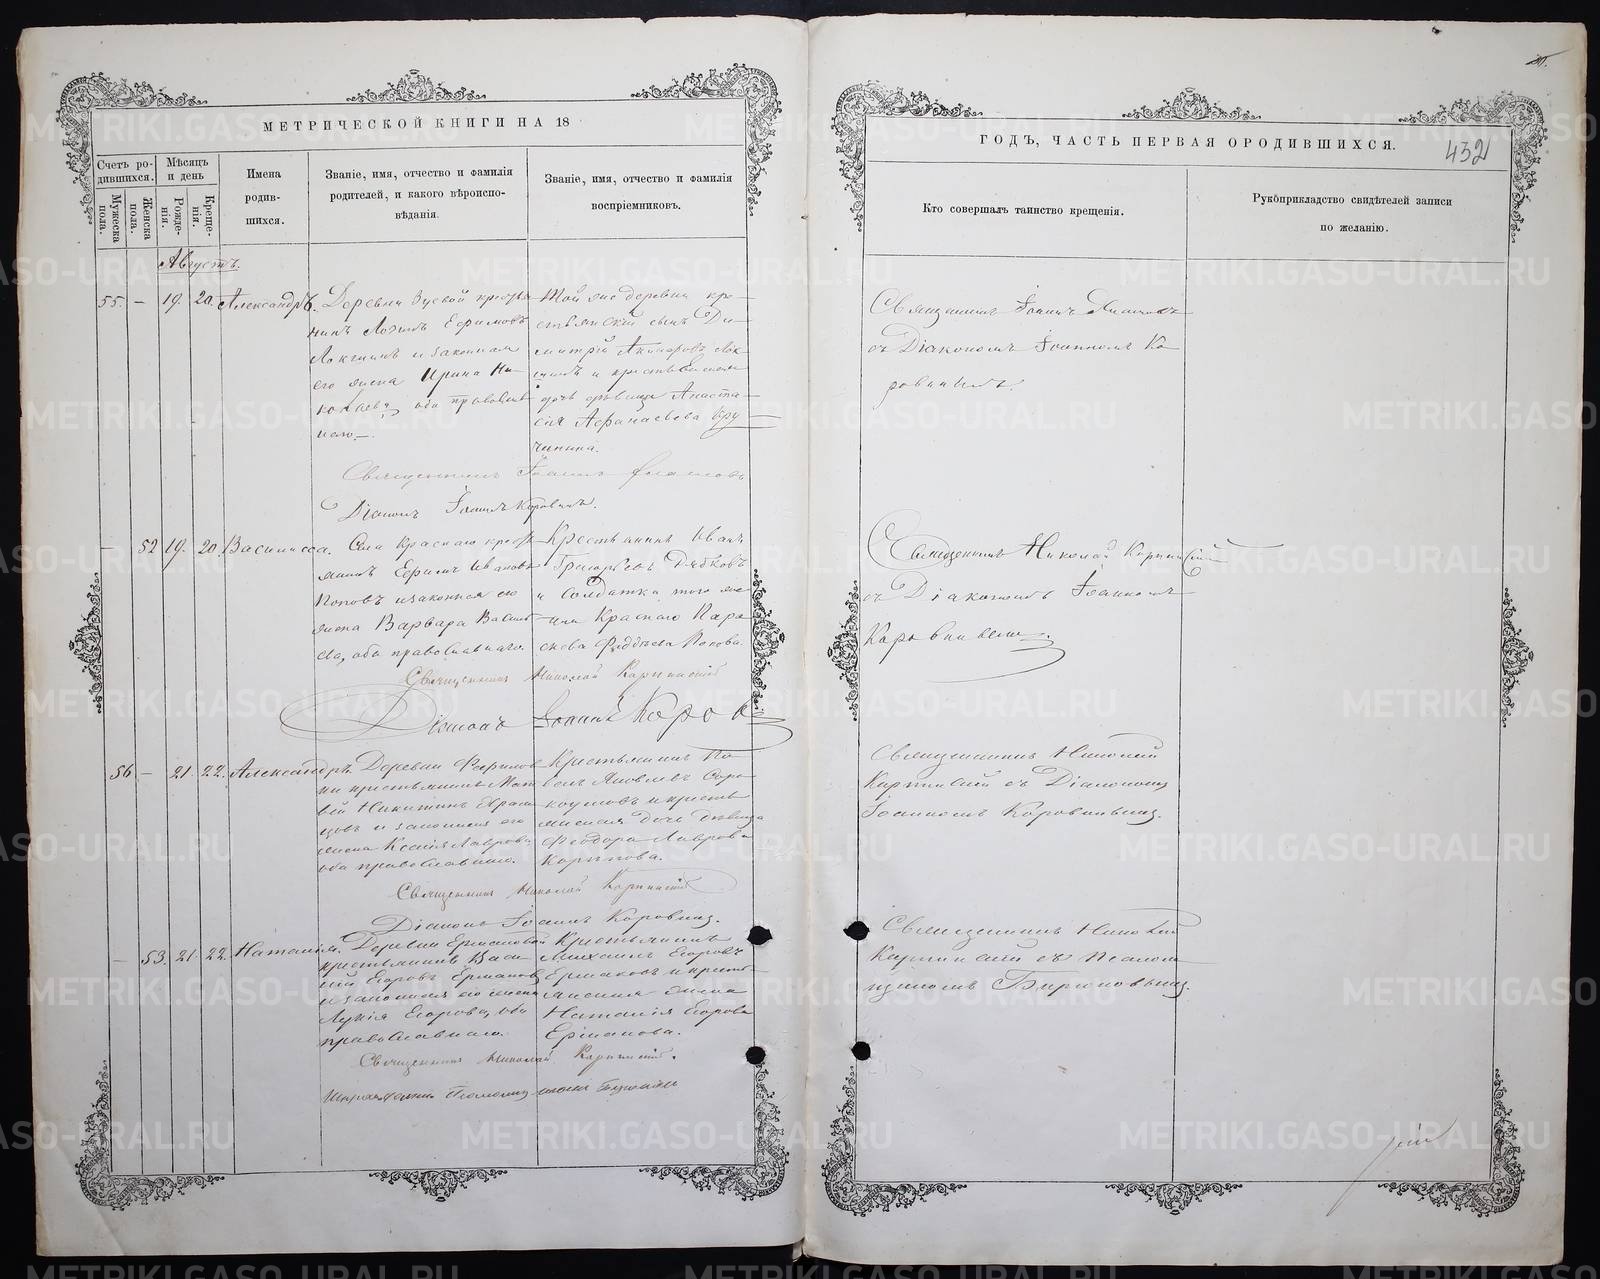 МЕТРИЧЕСКОЙ КНИГИ НА 18
Счетъ ро-
дившихся.
Мужеска
пола.
Женска
пола.
Мѣсяцъ
и день
Рожде-
нія.
Креще-
нія.
Имена
родив-
шихся.
Званіе, имя, отчество и фамилія
родителей, и какого вѣроиспо-
вѣданія.
Званіе, имя, отчество и фамилія
воспріемниковъ.
Августъ.
55. — 19. 20. Александръ.
Деревни Зуевой
Ефимовъ
и законная
его жена Ирина Ни-
колаева, оба православ-
наго.
Той же деревни кре-
стьянскій сынъ Ди-
митрій
дочь дѣвица Анаста-
сія Афанасьева Кру-
чинина.
Священникъ Іоаннъ
Діаконъ Іоаннъ Коровинъ.
— 52 19. 20. Василисса.
Села Краснаго крест-
янинъ Ефимъ Ивановъ
Поповъ и законная его
жена Варвара Василь-
ева, оба православнаго.
Крестьянинъ Иванъ
Григорьевъ Дябковъ
и Солдатка того же
села Краснаго Пара-
скева Фаддѣева Попова.
Священникъ Николай Карпинскій
Діаконъ Іоаннъ Корови
56 — 21. 22. Александръ.
Деревни
крестьянинъ Мат-
вѣй Никитинъ
и законная его
жена Ксенія Лаврова,
оба православнаго.
Крестьянинъ Па-
велъ Яковлевъ Соро-
коумовъ и кресть-
янская дочь дѣвица
Феодора Лаврова
Карпова.
Священникъ Николай Карпинскій
Діаконъ Іоаннъ Коровинъ.
— 53. 21. 22. Наталія.
Деревни Ермаковой
крестьянинъ Васи-
лій Егоровъ Ермаковъ
и законная его жена
Лукія Егорова, оба
православнаго.
Крестьянинъ
Михаилъ Егоровъ
Ермаковъ и кресть-
янская жена
Наталія Егорова
Ермакова.
Священникъ Николай Карпинскій.
ГОДЪ, ЧАСТЬ ПЕРВАЯ О РОДИВШИХСЯ.
432
Кто совершалъ таинство крещенія.
Рукоприкладство свидѣтелей записи
по желанію.
Священникъ Іоаннъ
съ Діакономъ Іоанномъ Ко-
ровинымъ.
Священникъ Николай Карпинскій
съ Діакономъ Іоанномъ
Коровинымъ.
Священникъ Николай
Карпинскій съ Діакономъ
Іоанномъ Коровинымъ.
Священникъ Николай
Карпинскій съ Псалом-
щикомъ Бирюковымъ.
METRIKI.GASO-URAL.RU